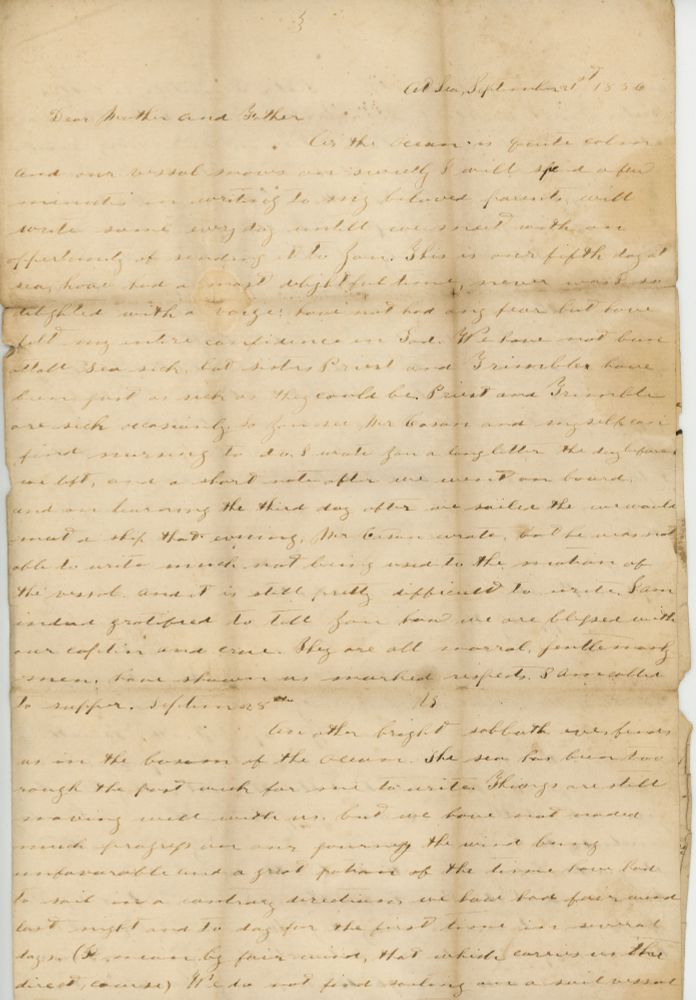 3
At Sea, September 21st 1856
Dear Mother and Father
As the ocean is quite calm
and our vessel moves on sweetly I will spend a few
minutes in writing to my beloved parents, will
write some every day untill we meet with an
oppertunity of sending it to you. This is our fifth day at
sea, have had a most delightful time, never was I so
delighted with a voige; have not had any fear but have
felt my entire confidence in God. We have not been
atall sea sick, but sisters Priest and Trimble have
been just as sick as they could be. Priest and Trimble
are sick occasionly, so you see Mr Cason and myself can
find nursing to do. I wrote you a long letter the day before
we left, and a short note after we went on board,
and on learning the third day after we sailed the we would
meet a ship that evening, Mr Cason wrote, but he was not
able to write much not being used to the motion of
the vessel and it is still pretty difficult to write. I am
indeed gratified to tell you how we are blessed with
our captin and crew. They are all morral, gentlemanly
men, have shown us marked respects. I am called
to supper. Septem 28th
An other bright sabbath eve finds
us in the bosom of the ocean. The sea has been too
rough the past week for me to write. Things are still
moving well with us, but we have not maded
much progress on our journey the wind being
unfavourable and a great potion of the time have had
to sail in a contrary direction, we have had fair wind
last night and to day for the first time in several
days. (I mean by fair wind, that which carries us the
direct, course) We do not find sailing on a sail vessel